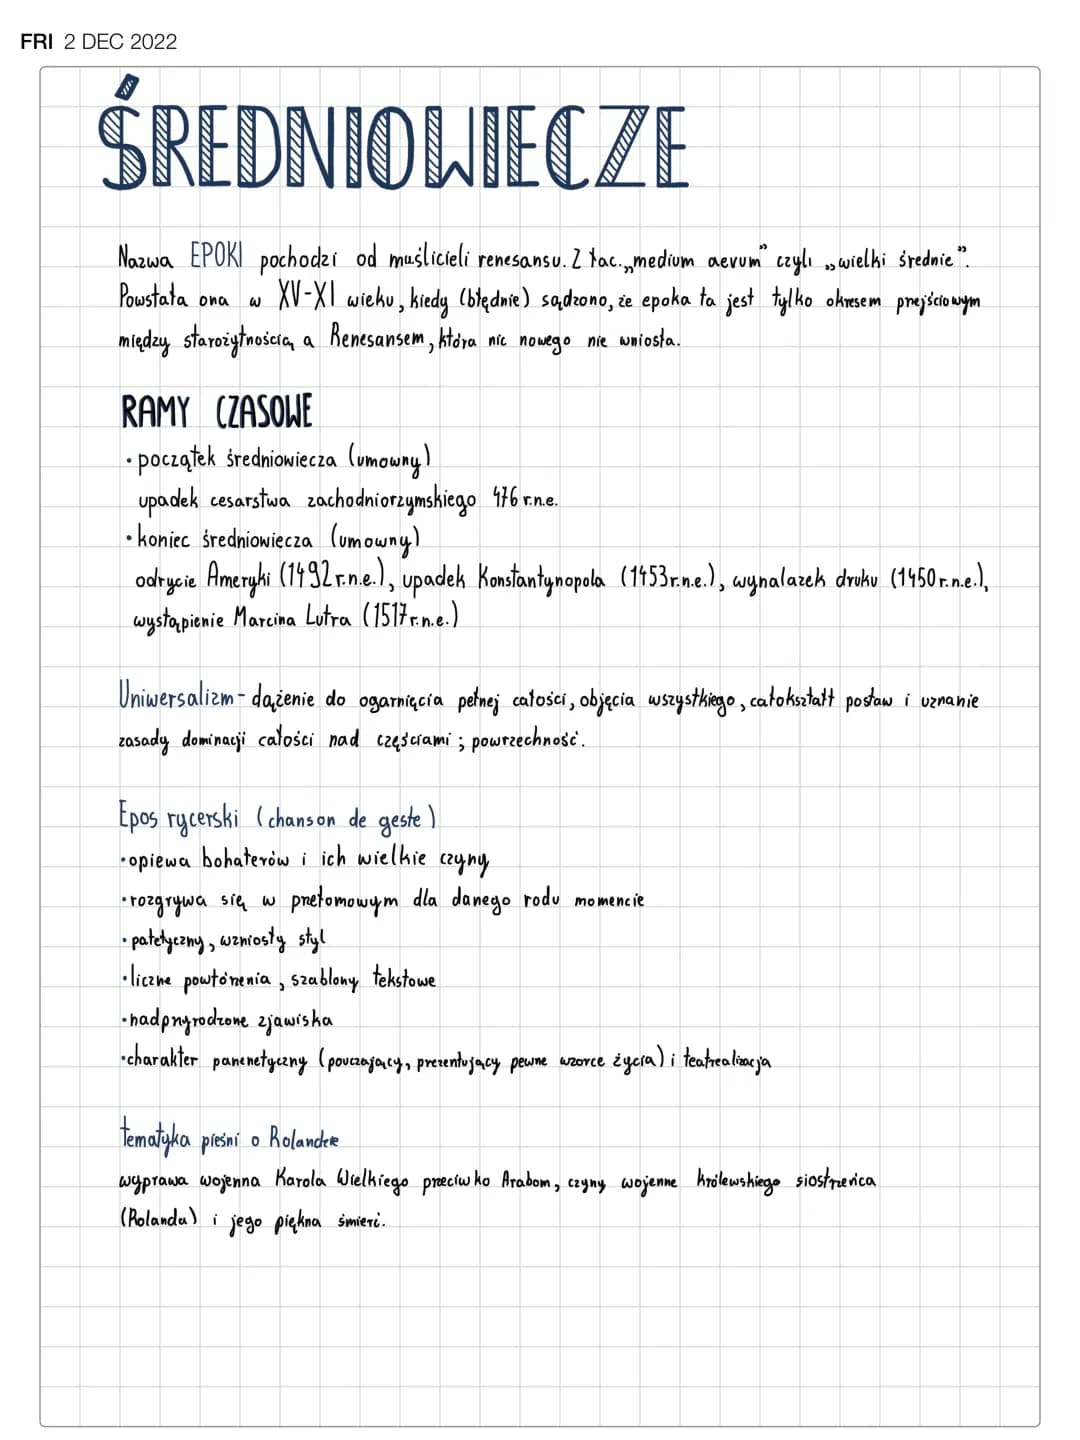 FRI 2 DEC 2022
ŚREDNIOWIECZE
Nazwa EPOKI pochodzi od muślicieli renesansu. Z łac. „medium aevum” czyli „wielki średnie”.
Powstała ona w XV-XI wieku, kiedy (błędnie) sądzono, że epoka ta jest tylko okresem prejściowym
między starożytnością a Renesansem, która nic nowego nie wniosła.
RAMY CZASOWE
• początek średniowiecza (umowny)
upadek cesarstwa zachodniorzymskiego 476 r.n.e.
• koniec średniowiecza (umowny)
odrycie Ameryki (1492 r.n.e.), upadek Konstantynopola (1453 r.n.e.), wynalazek druku (1450 r.n.e.),
wystąpienie Marcina Lutra (1517 r.n.e.)
Uniwersalizm - dążenie do ogarnięcia pełnej całości, objęcia wszystkiego, całokształt postaw i uznanie
zasady dominacji całości nad częściami ; powrzechność.
Epos rycerski (chanson de geste)
• opiewa bohaterów i ich wielkie czyny
• rozgrywa się w przełomowym dla danego rodu momencie
• patetyczny, wzniosły styl
• liczne powtórzenia, szablony tekstowe
• nadprzyrodzone zjawiska
• charakter parenetyczny (pouczający, prezentujący pewne wzorce życia) i teatrealizacja
tematyka pieśni o Rolandzie
wyprawa wojenna Karola Wielkiego przeciwko Arabom, czyny wojenne królewskiego siostrzeńca
(Rolanda) i jego piękna śmierć.